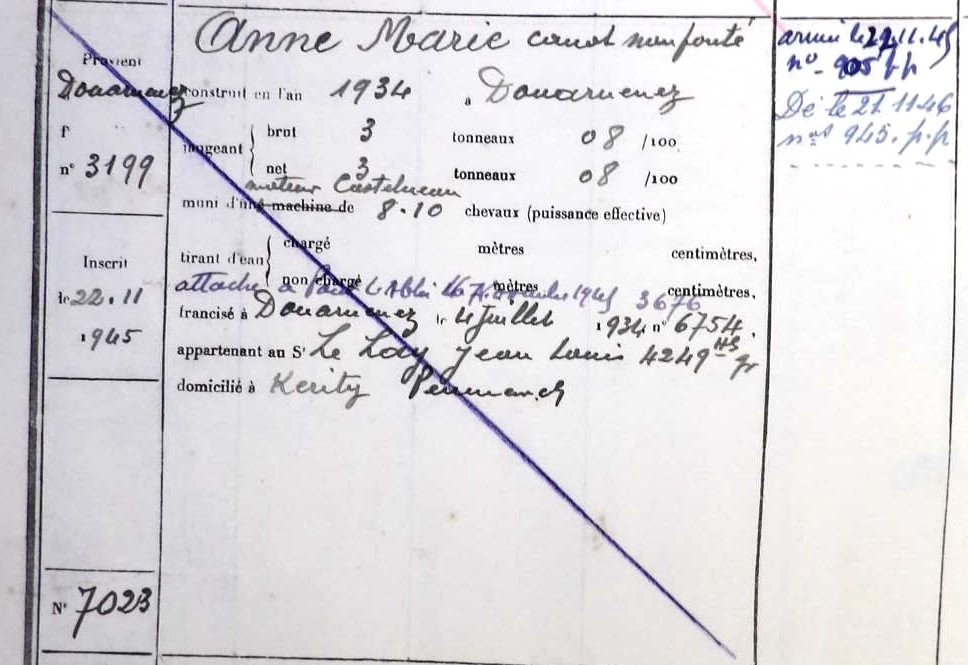 Anne Marie canot non ponté
Provient
Douarnenez
f
n° 3199
Inscrit
le 22.11
1945
N° 7023
construit en l'an 1934 à Douarnenez
jaugeant
brut 3 tonneaux 08 /100
net 3 tonneaux 08 /100
moteur
muni d'une machine de 8.10 chevaux (puissance effective)
tirant d'eau
chargé mètres centimètres,
non chargé mètres centimètres,
attache à 1945 3676
francisé à Douarnenez le 4 Juillet 1934 n° 6754.
appartenant au Sr Le Lay Jean Louis 4249
domicilié à Kerity Penmarch
armé le 22.11.45
n° 805 pp
Dé le 21.11.46
945. p.p